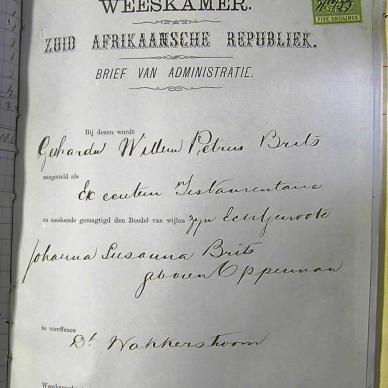 WEESKAMER.
ZUID AFRIKAANSCHE REPUBLIEK.
BRIEF VAN ADMINISTRATIE.
FIVE SHILLINGS
Bij dezen wordt
Gerhardus Willem Petrus Brits
aangesteld als
Executeur Testamentair
en zoodoende gemagtigd den Boedel van wijlen zyn Echtgenoote
Johanna Susanna Brits
geboren Opperman
te vereffenen
Dt. Wakkerstroom
Weeskamer